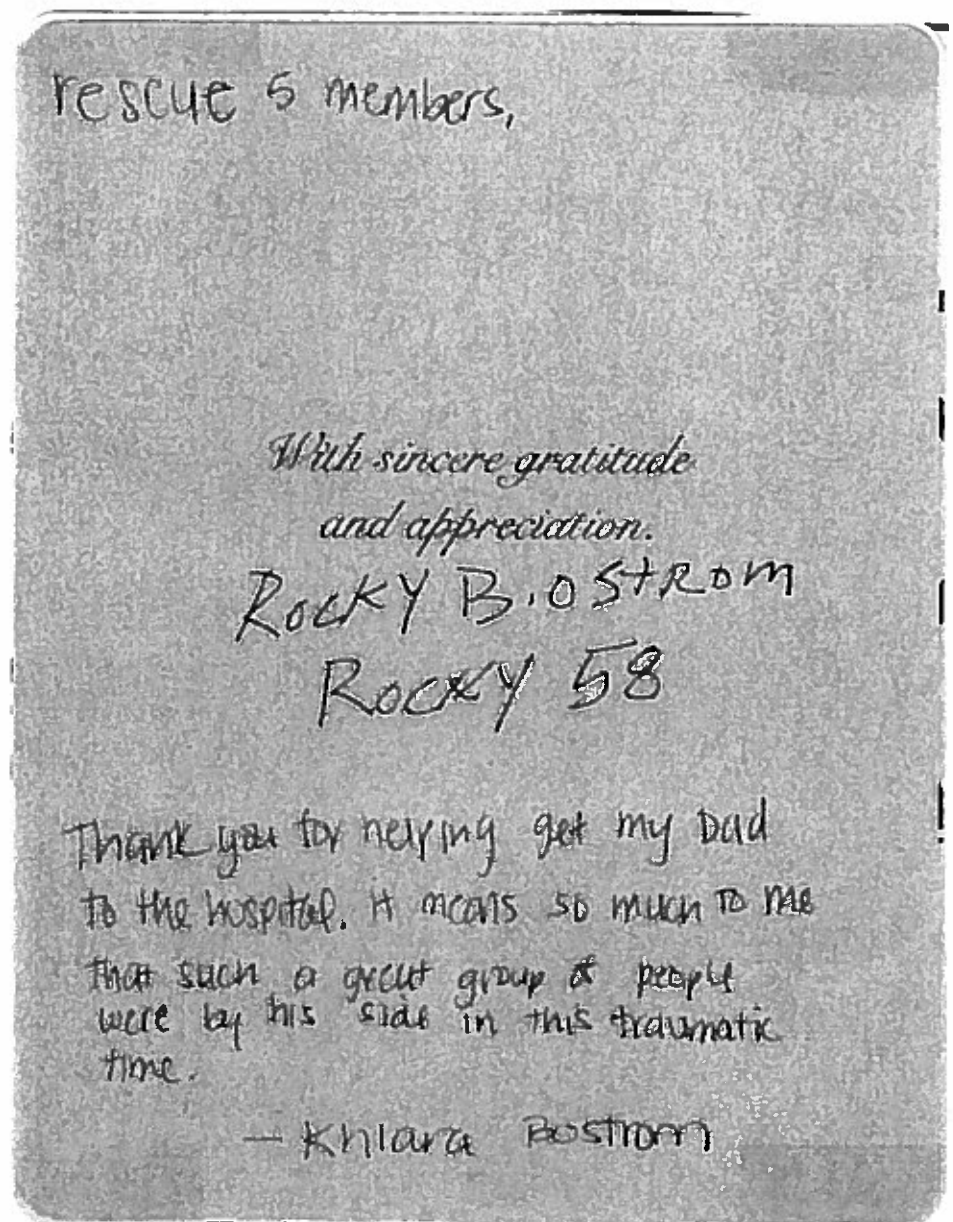 rescue 5 members,
With sincere gratitude
and appreciation.
Rocky B.ostrom
Rocky 58
Thank you for helping get my Dad
to the hospital. it means so much to me
that such a great group of people
were by his side in this traumatic
time.
— Khlara Bostrom